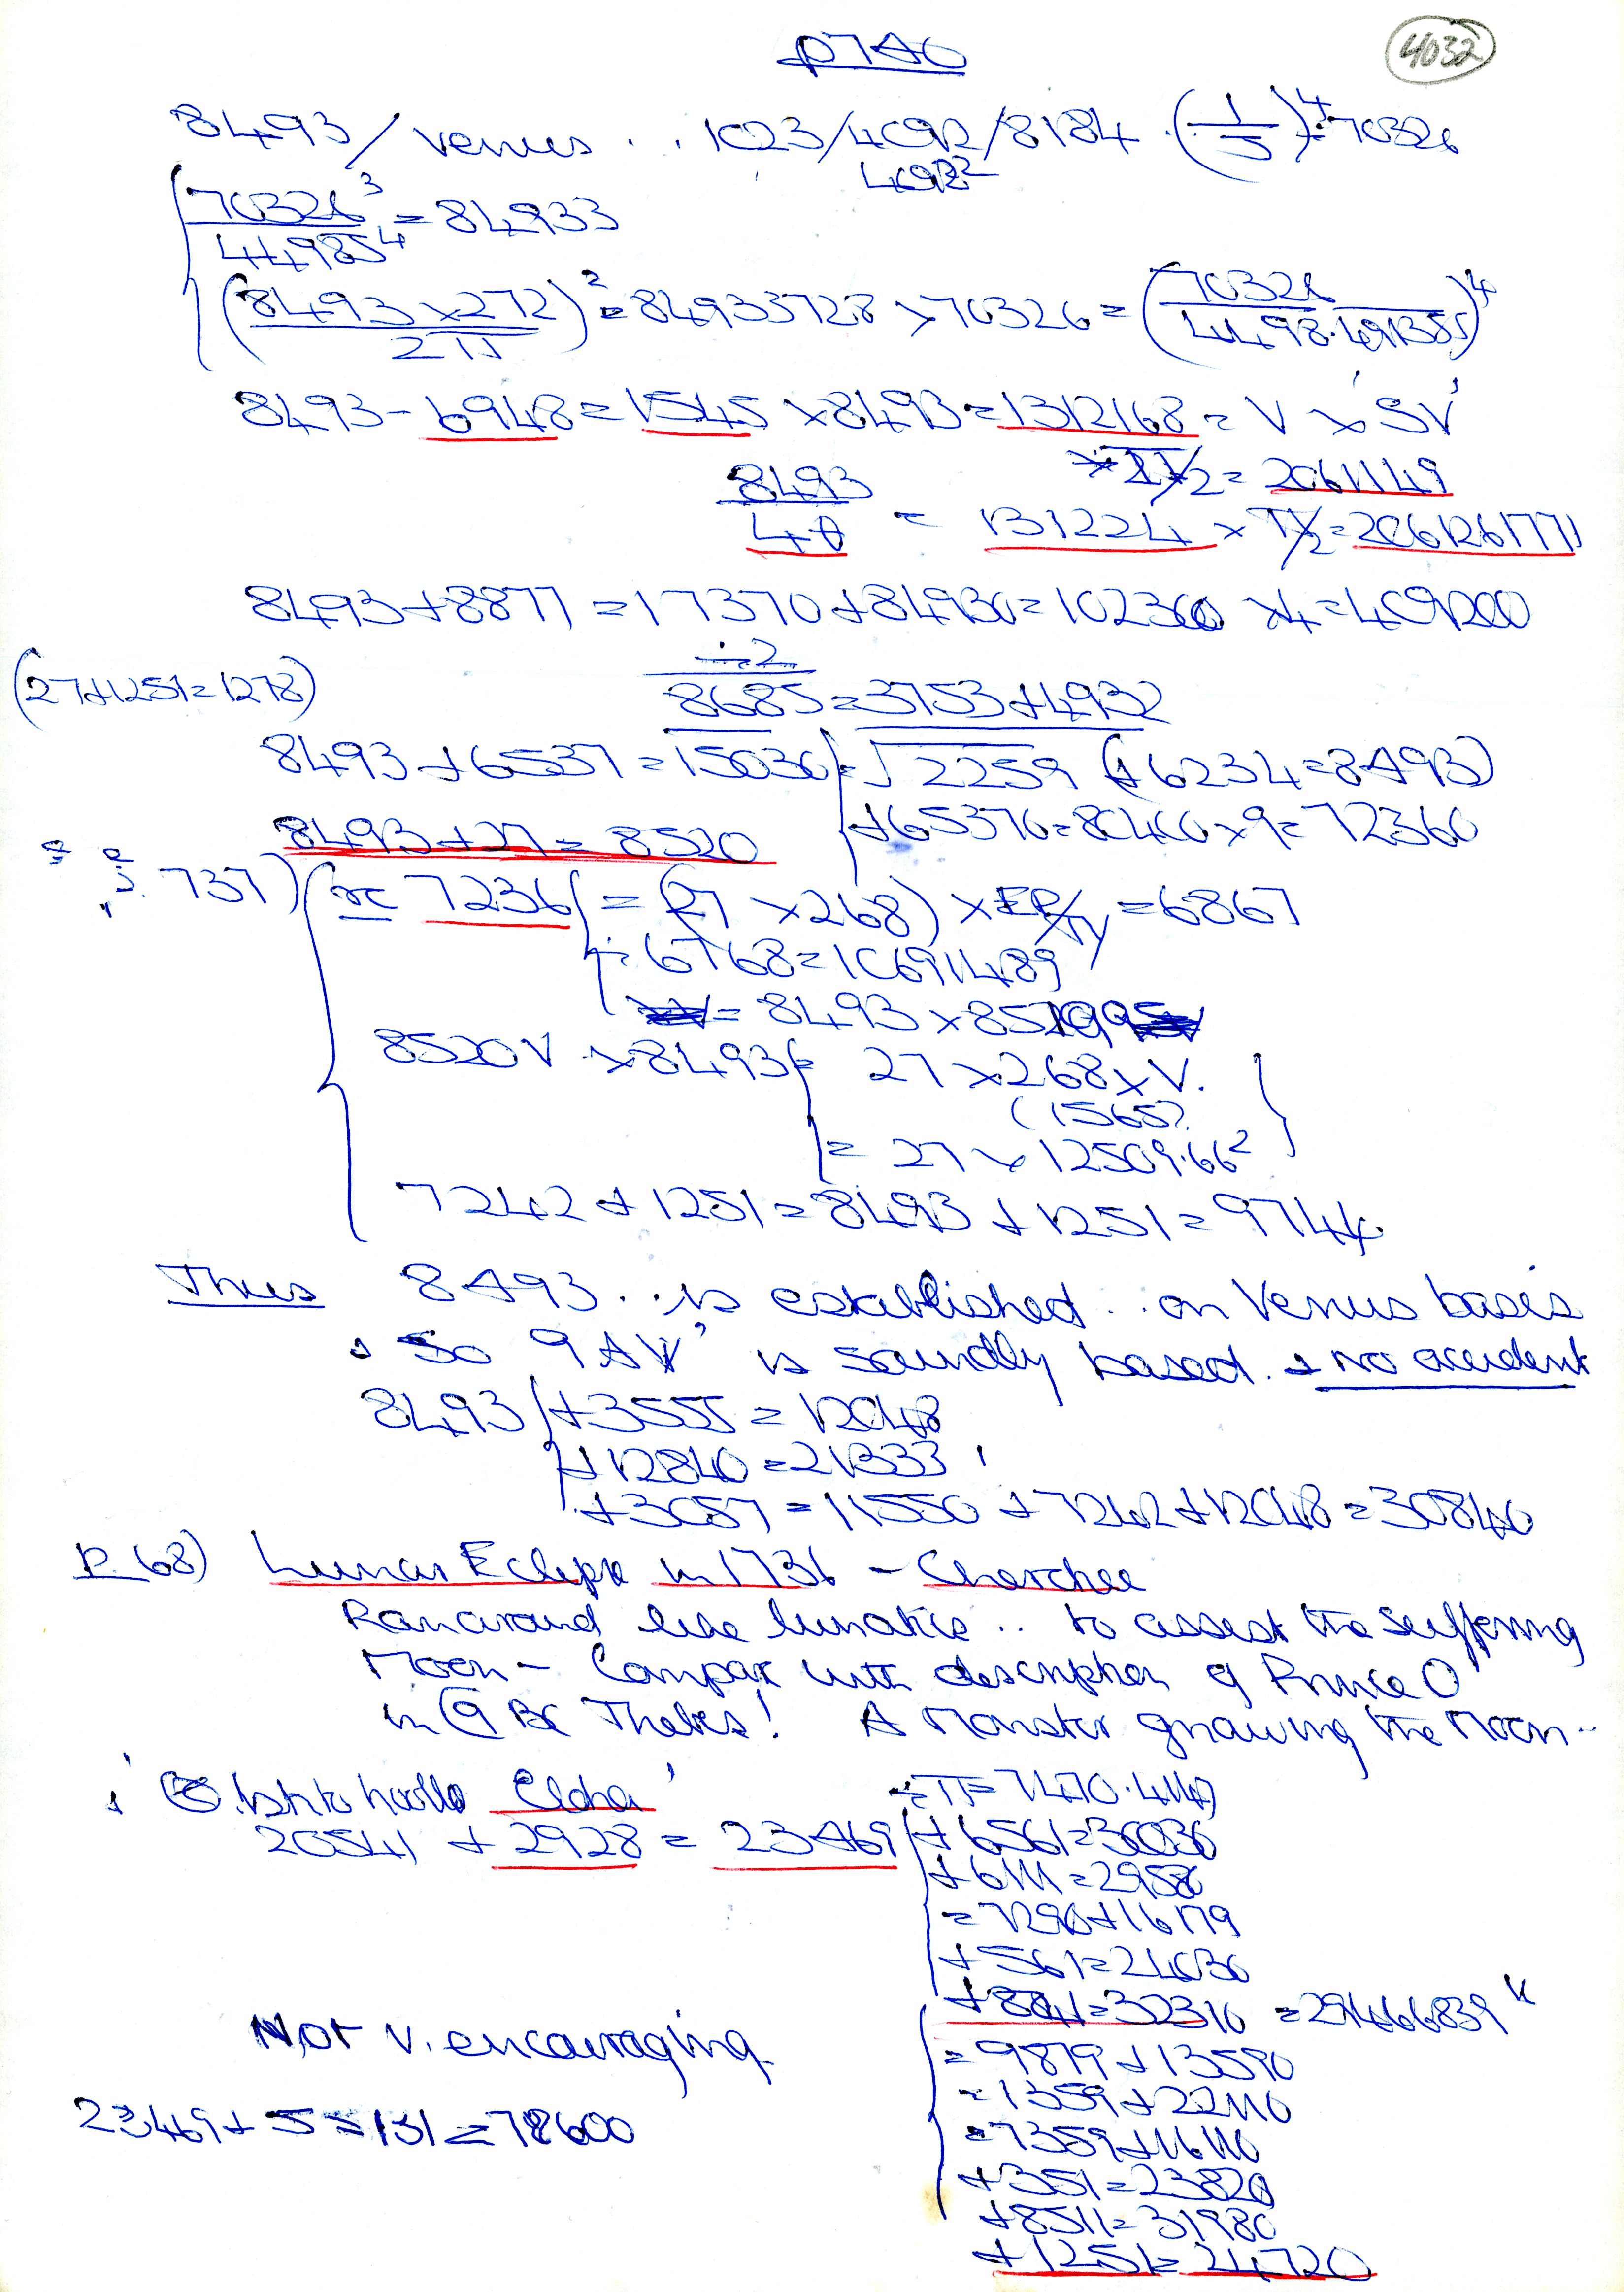 p740
4032
8493/Venus . . 1023/4092/8184 . (1/5)⁴ = 70326
4092²
70326³/44985⁴ = 84933
(8493 × 272/2π)² = 84933728 × 70326 = (70326/4498.491385)⁴
8493 - 6948 = 1545 × 8493 = 1312168 = V × SV'
× π/2 = 2061149
8493/4π = 131224 × π/2 = 206126177
8493 + 8877 = 17370 + 84930 = 102300 × 4 = 409200
÷2
(27+1251=1278)
8685 = 3753 + 4932
8493 + 6537 = 15030 = √2259 (+6234=8493)
+65370=80400×9=72360
8493 + 27 = 8520
737) 7236 = (27 × 268) × = 6867
÷ 6768 = 10691489
= 8493 × 851
8520V × 8493 = 27 × 268 × V.
(1565?
= 27 × 12509.66²
7242 + 1251 = 8493 + 1251 = 9744
Thus 8493 . . is established . . on Venus basis
+ So 9 is soundly based. + no accident
8493 +3555 = 12048
+12840 = 21333
+3057 = 11550 + 7242 + 12048 = 30840
P. 68) Lunar Eclipse in 1736 - Cherokee
Ran around like lunatics . . to assist the suffering
Moon - Compare with description of Prince O
in C9 BC Thebes! A Monster gnawing the Moon -
÷ π = 7470.4147
20541 + 2928 = 23469 +6561=30030
+6111=29580
=7290+16179
+561=24030
+8841=32310 = 29466839
=9879+13590
=1359+22110
=7359+16110
+351=23820
+8511=31980
+1251=24720
Not v. encouraging
23469 + 55131 = 78600